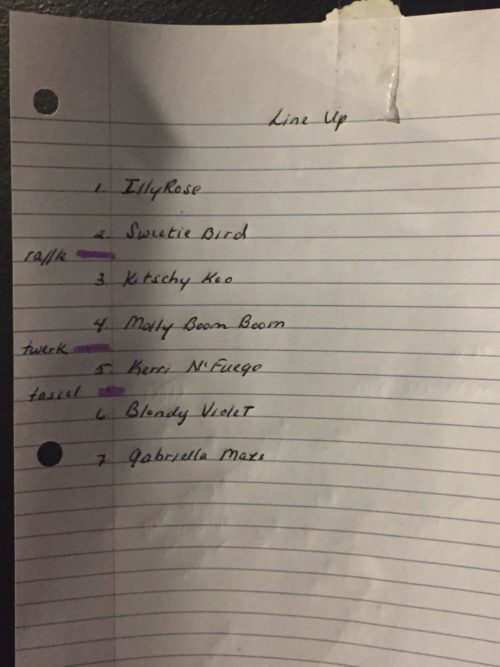 Line Up
1. IllyRose
2. Sweetie Bird
raffle
3. Kitschy Koo
4. Molly Boom Boom
twerk
5. Kerri N'Fuego
tassel
6 Blondy Violet
7. Gabriella